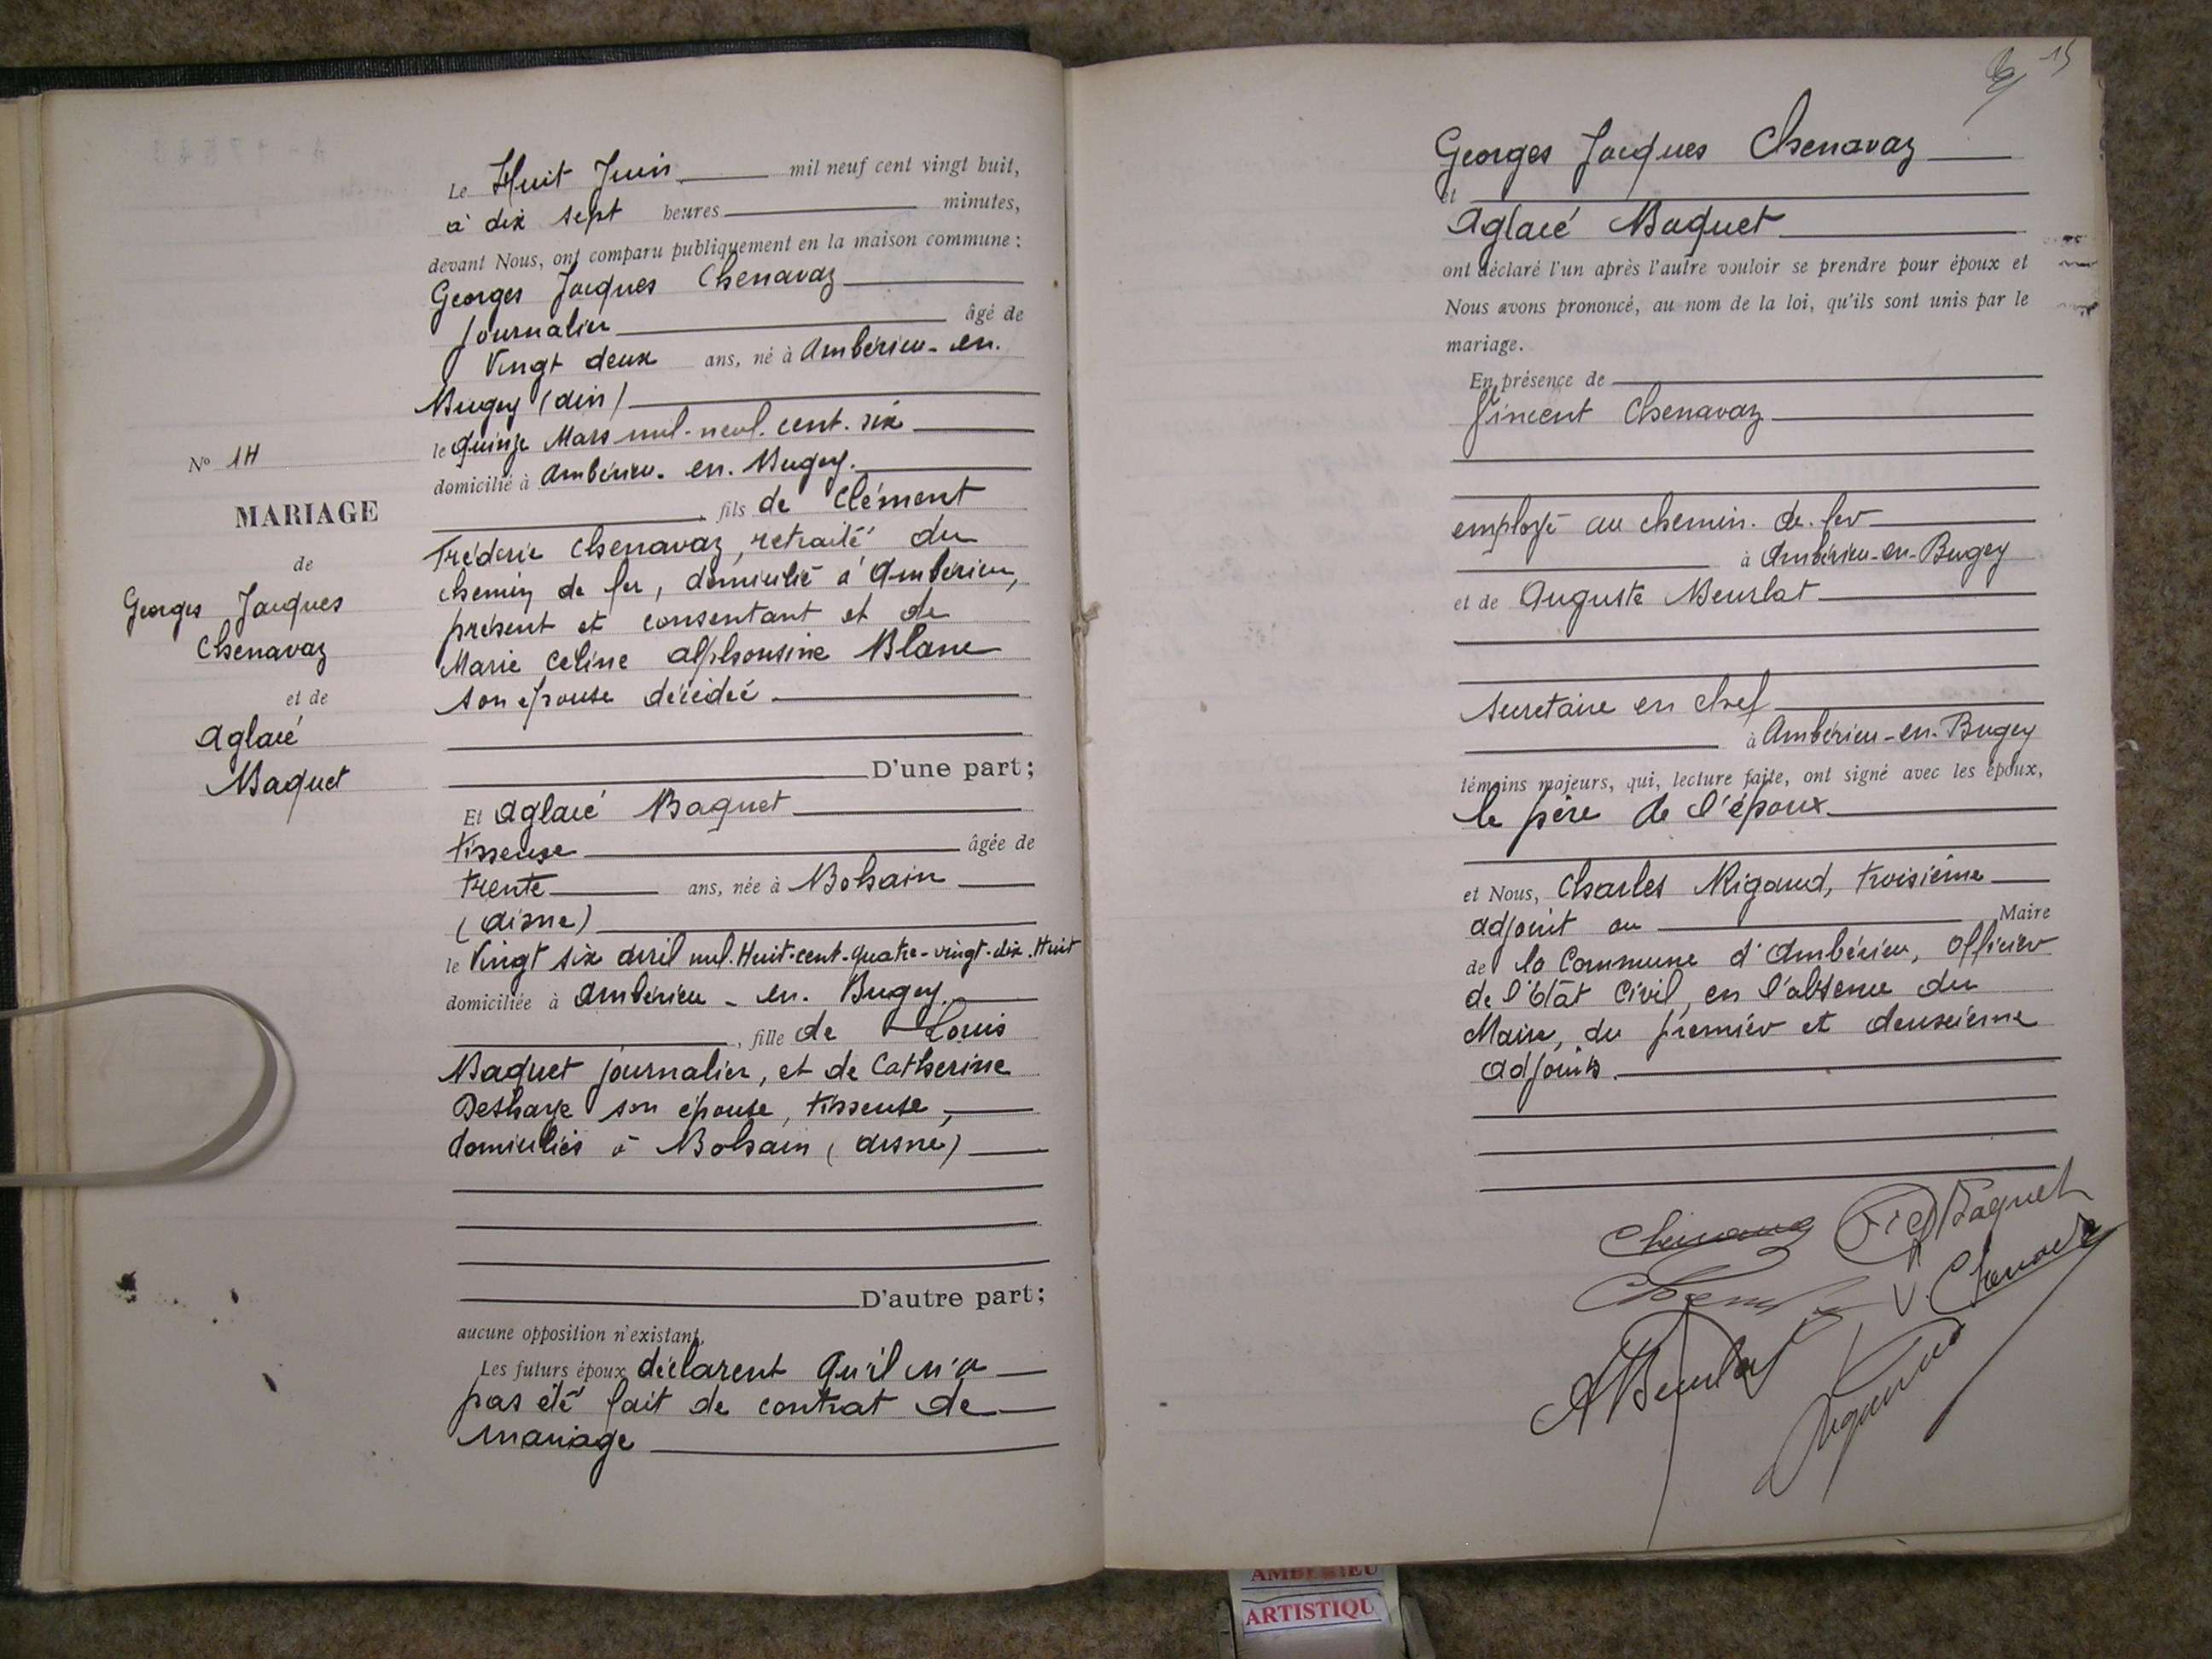 Le Huit Juin mil neuf cent vingt huit,
à dix sept heures minutes,
devant Nous, ont comparu publiquement en la maison commune :
Georges Jacques Chenavaz
journalier âgé de
Vingt deux ans, né à Ambérieu-en-
Bugey (Ain)
le quinze Mars mil-neuf-cent-six
domicilié à Ambérieu-en-Bugey.
, fils de Clément
Fréderic Chenavaz, retraité du
chemin de fer, domicilié à Ambérieu,
présent et consentant et de
Marie Celine Alphonsine Blanc
son épouse décédée
D'une part ;
Et Aglaié Baquet
tisseuse âgée de
trente ans, née à Bohain
(Aisne)
le Vingt six Avril mil-Huit-cent-quatre-vingt-dix-Huit
domiciliée à Ambérieu-en-Bugey.
, fille de Louis
Baquet journalier, et de Catherine
son épouse, tisseuse,
domiciliés à Bohain (Aisne)
D'autre part ;
aucune opposition n'existant.
Les futurs époux déclarent qu'il n'a
pas été fait de contrat de
mariage
No 14
MARIAGE
de
Georges Jacques
Chenavaz
et de
Aglaié
Baquet
15
Georges Jacques Chenavaz
et
Aglaié Baquet
ont déclaré l'un après l'autre vouloir se prendre pour époux et
Nous avons prononcé, au nom de la loi, qu'ils sont unis par le
mariage.
En présence de
Vincent Chenavaz
employé au chemin-de-fer
à Ambérieu-en-Bugey
et de Auguste Beurlat
secretaire en chef
à Ambérieu-en-Bugey
témoins majeurs, qui, lecture faite, ont signé avec les époux,
le père de l'époux
et Nous, Charles Rigaud, troisième
adjoint au Maire
de la Commune d'Ambérieu, Officier
de l'État Civil, en l'absence du
Maire, du premier et deuxième
adjoints.
Chenavaz Baquet
V. Chenavaz
A Beurlat
Rigaud
AMBERIEU
ARTISTIQU